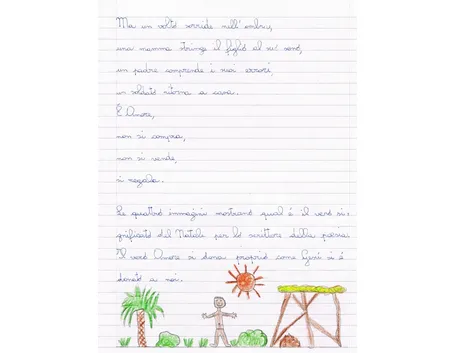 Ma un volto sorride nell'ombra,
una mamma stringe il figlio al suo seno,
un padre comprende i suoi errori,
un soldato ritorna a casa.
È Amore,
non si compra,
non si vende,
si regala.
Le quattro immagini mostrano qual è il vero si-
gnificato del Natale per lo scrittore della poesia.
Il vero Amore si dona proprio come si è
donato a noi.